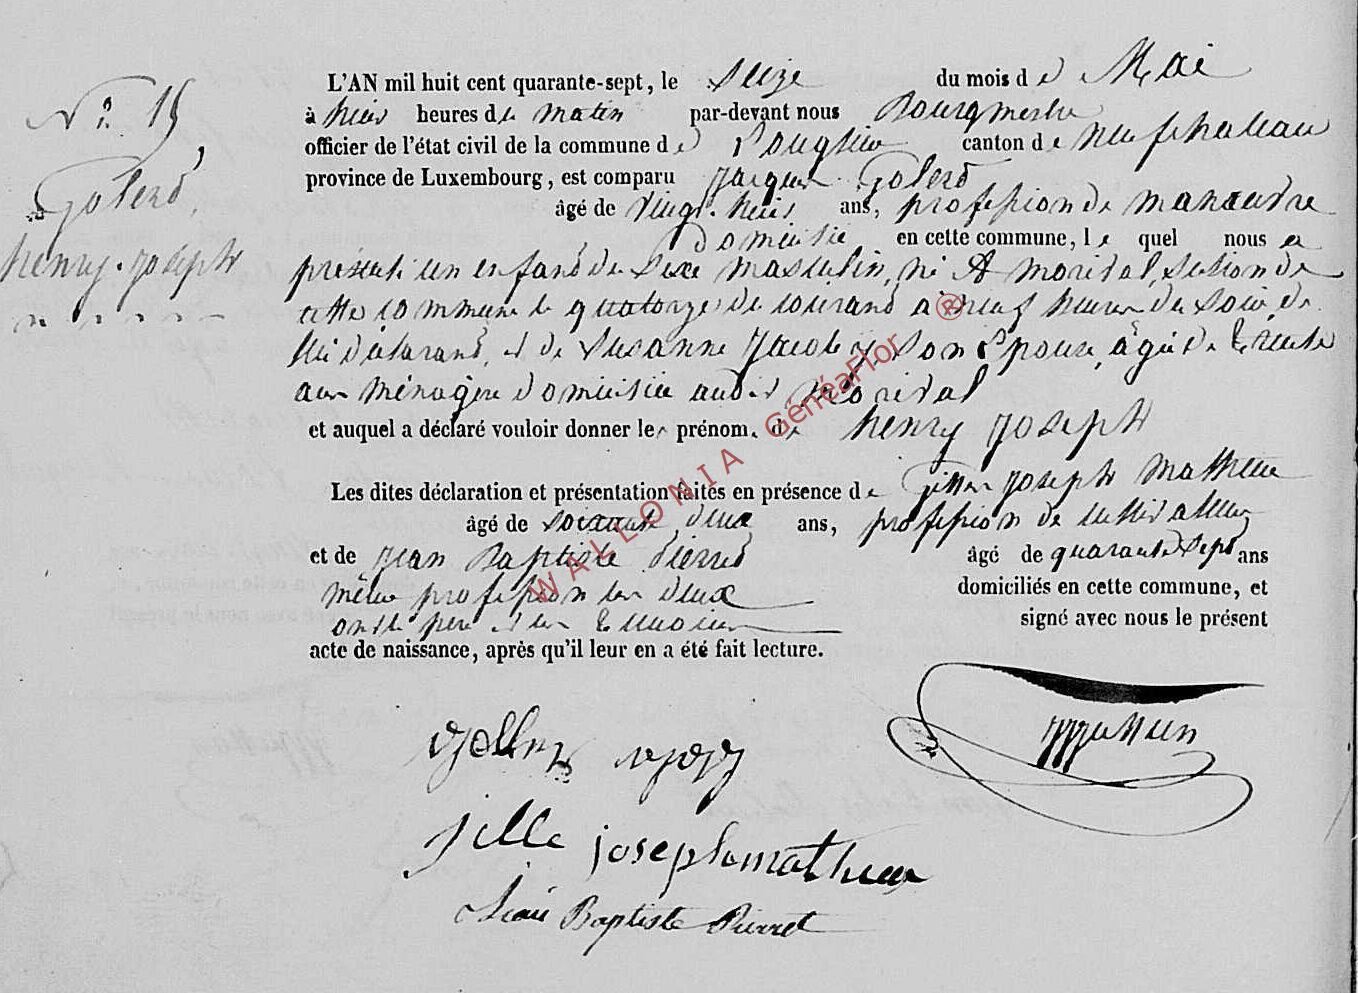 N° 15
Golerd,
henry. joseph
L'AN mil huit cent quarante-sept, le Seize du mois de Mai
à huit heures du matin par-devant nous Bourgmestre
officier de l'état civil de la commune de canton de neufchateau
province de Luxembourg, est comparu Jacques Golerd
âgé de vingt-huit ans, profession de manœuvre
domicilié en cette commune, le quel nous a
presenté un enfand du Sexe masculin, né A morival, section de
cette commune le quatorze du courand a neuf heures du Soir de
lui déclarand, et de Susanne Jacob son Epouse, âgée de trente
ans ménagère domiciliée audit Morival
et auquel a déclaré vouloir donner les prénom. de henry joseph
Les dites déclaration et présentation faites en présence de joseph Mathieu
âgé de soixante deux ans, profession de cultivateur
et de jean Baptiste Pierred âgé de quarante Sept ans
même profession les deux domiciliés en cette commune, et
ont le père et les témoins signé avec nous le présent
acte de naissance, après qu'il leur en a été fait lecture.
jille joseph mathieu
Jean Baptiste Pierret
WALLONIA GénéaFlor ®